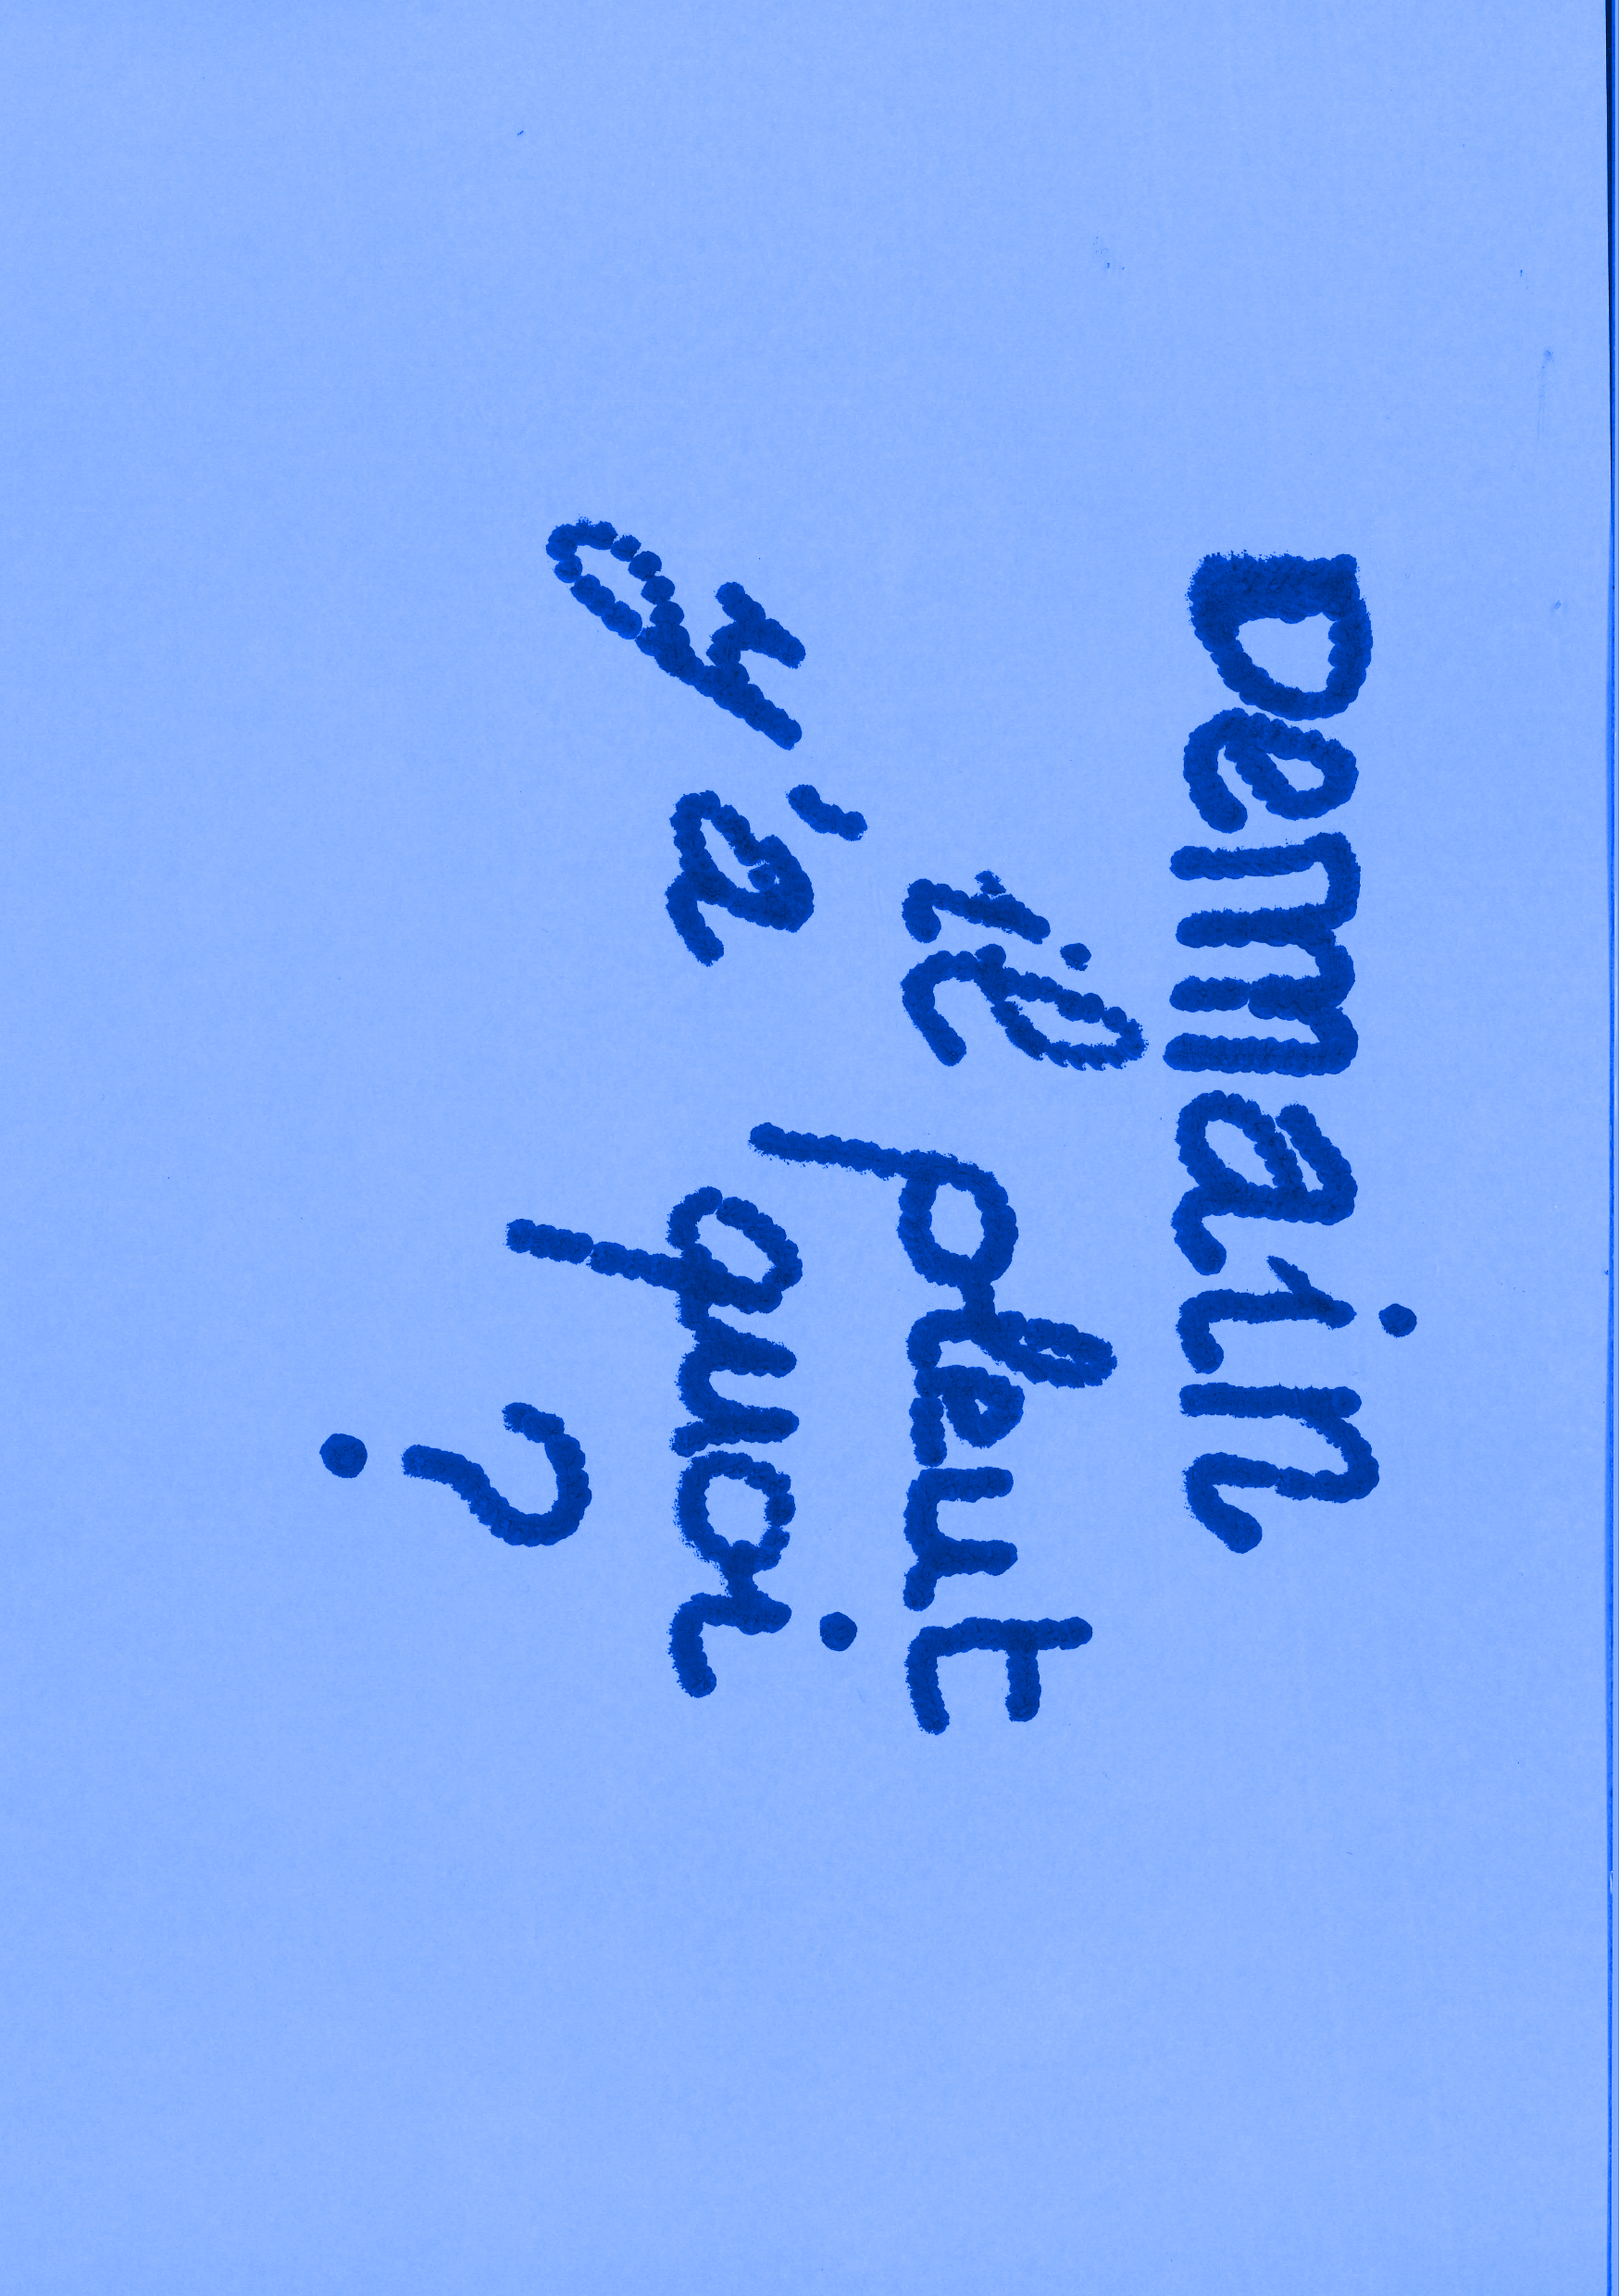 Demain
il pleut
y'a quoi
?